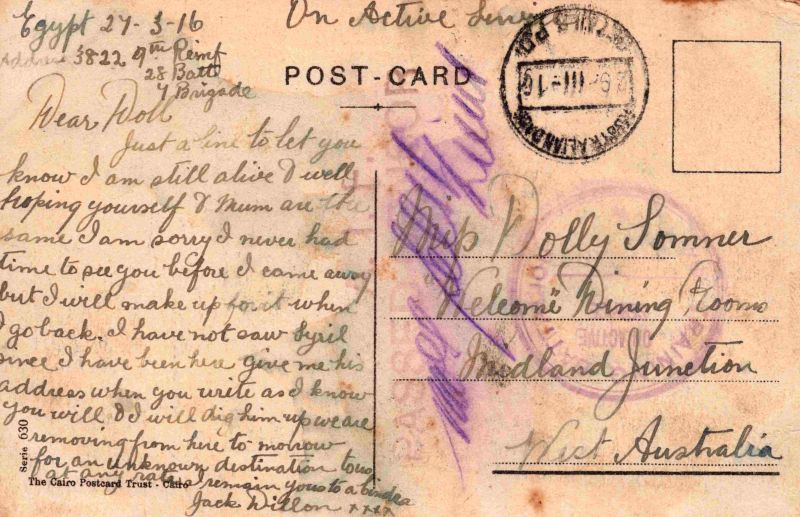 Egypt 27-3-16
On Active Service
Address 3822 9th Reinf
28 Batt
7 Brigade
POST-CARD
Dear Doll
Just a line to let you
know I am still alive & well
hoping yourself & Mum are the
same I am sorry I never had
time to see you before I came away
but I will make up for it when
I go back. I have not saw
since I have been here give me his
address when you write as I know
you will & I will dig him up we are
removing from here to morrow
for an unknown destination to us
at any rate I remain yours to a
Jack Dillon xxxx
Serie 630
The Cairo Postcard Trust - Cairo
PASSED
Miss Dolly Somner
Welcome Dining Rooms
Midland Junction
West Australia